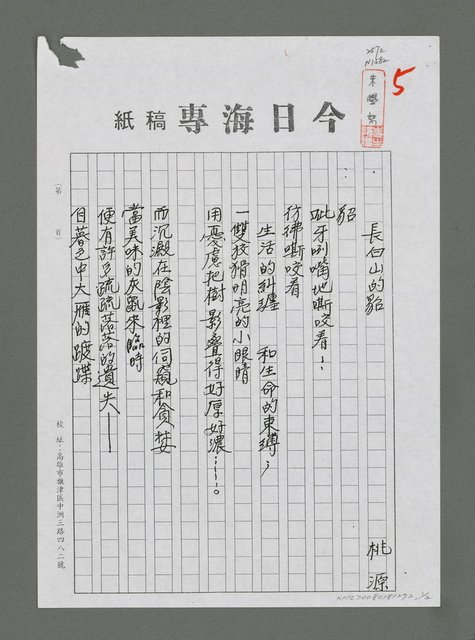 2572
N1582
5
今日海專稿紙
長白山的貂
桃源
貂
齜牙咧嘴地嘶咬着…
彷彿嘶咬着
生活的糾纏 和生命的束縛;
一雙狡猾明亮的小眼睛
用憂慮把樹影疊得好厚好濃……。
而沉澱在陰影裡的伺窺和貪婪
當美味的灰鼠來臨時
便有許多疏疏落落的遺失——
自暮色中大雁的蹊蹀
(第 頁)
校址:高雄市旗津區中洲三路四八二號
NMTL20080181272 1/2